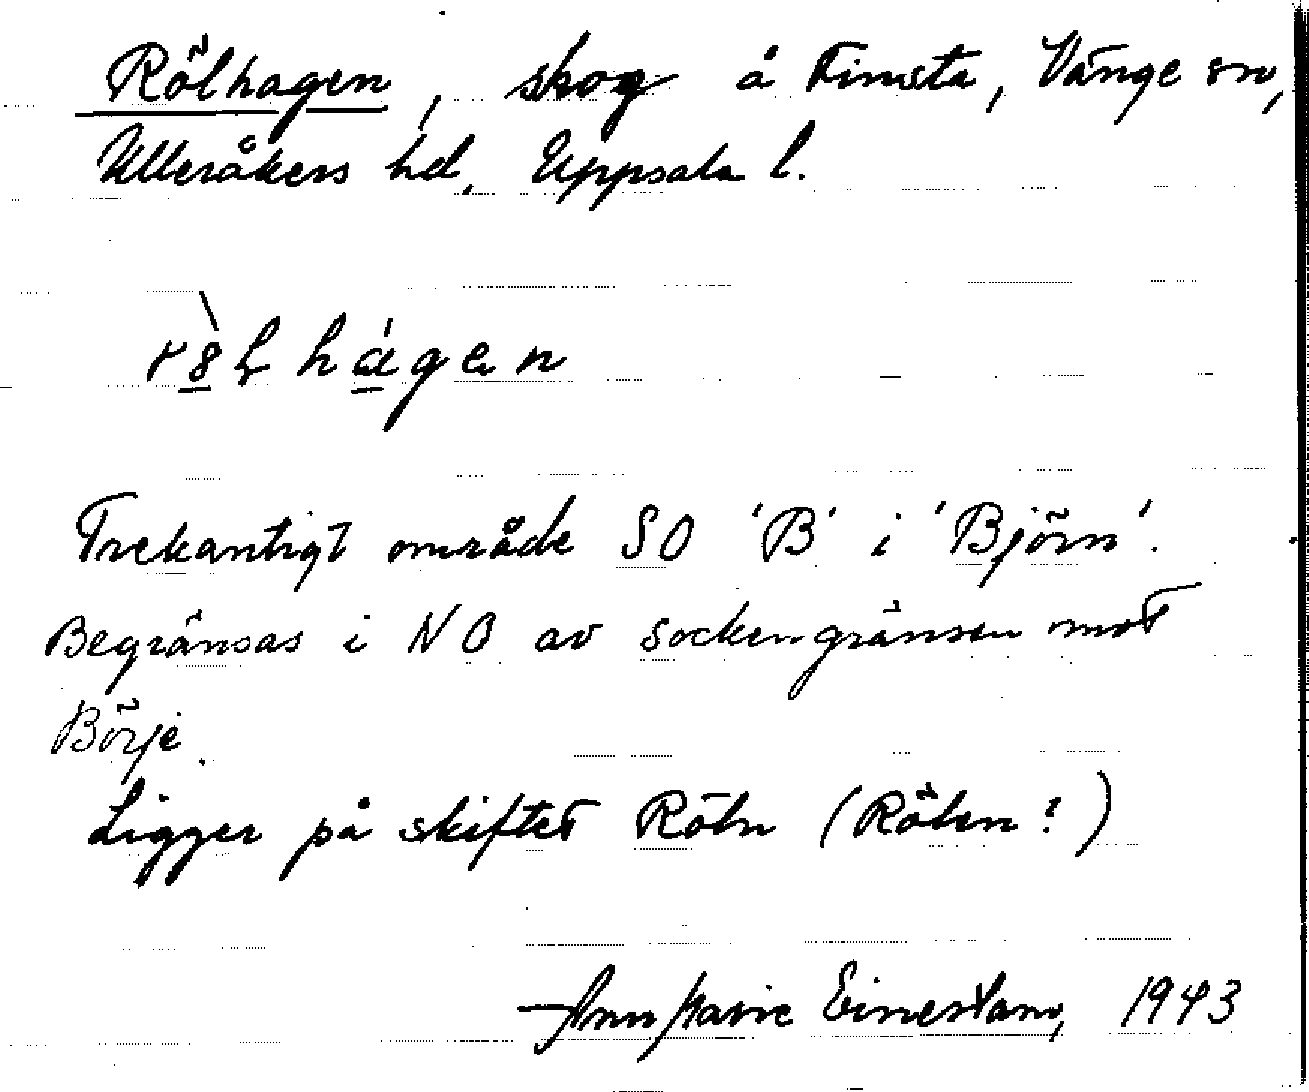 Rölhagen, skog å Finsta, Vänge sn,
Ulleråkers hd, Uppsala l.
Trekantigt område SO 'B' i 'Björn'.
Begränsas i NO av sockengränsen mot
Börje.
Ligger på skiftet Röln (Rölen?)
1943